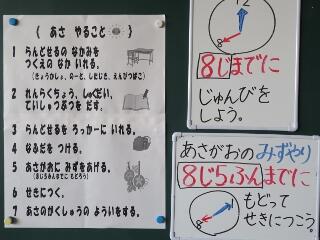 《 あさ やること 》
1 らんどせるの なかみを
つくえの なか いれる。
(きょうかしょ、のーと、したじき、えんぴつばこ)
2 れんらくちょう、しゅくだい、
ていしゅつぶつを だす。
3 らんどせるを ろっかーに いれる。
4 なふだを つける。
5 あさがおに みずをあげる。
(8じ5ふんまでに もどろう)
6 せきにつく。
7 あさのがくしゅうの よういをする。
12
8
8じまでに
じゅんびを
しよう。
あさがおのみずやり
8じ5ふんまでに
8
1
もどって
せきにつこう。